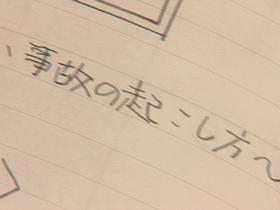 、事故の起こし方〜